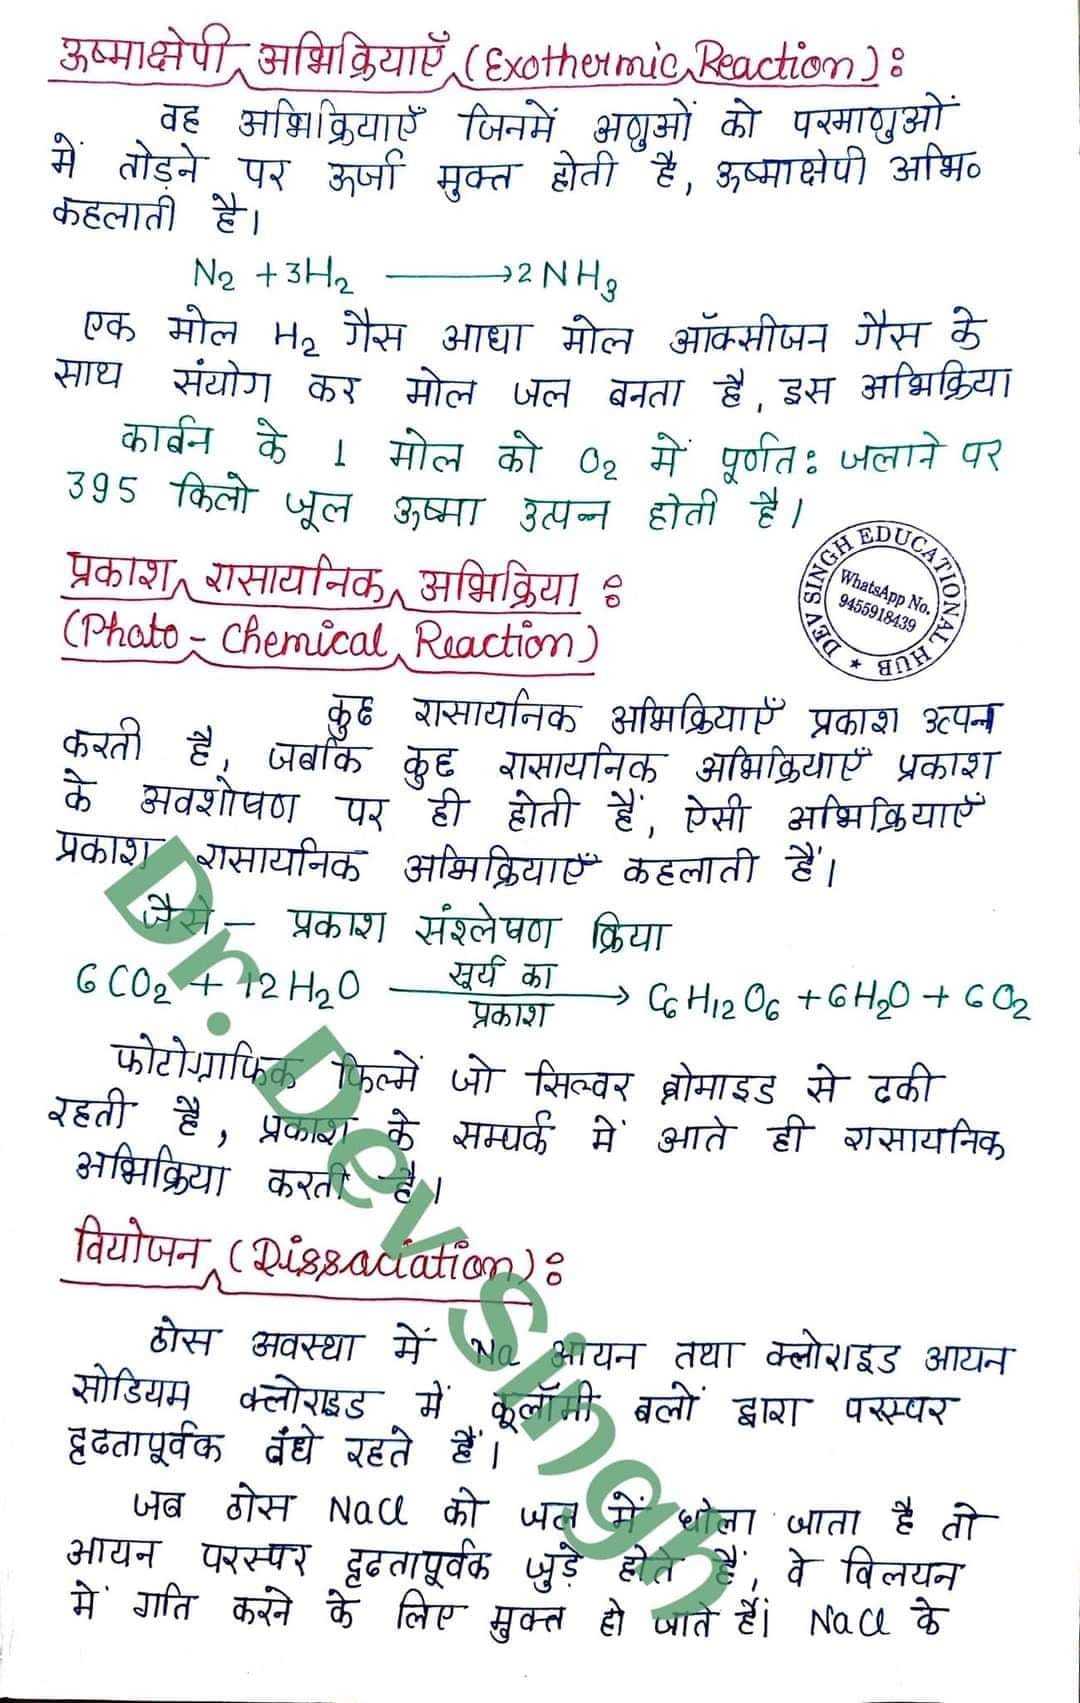 ऊष्माक्षेपी अभिक्रियाएँ (Exothermic Reaction) :
वह अभिक्रियाएँ जिनमें अणुओं को परमाणुओं
में तोड़ने पर ऊर्जा मुक्त होती है, ऊष्माक्षेपी अभि०
कहलाती है।
N2 + 3H2 ⟶ 2NH3
एक मोल H2 गैस आधा मोल ऑक्सीजन गैस के
साथ संयोग कर मोल जल बनता है, इस अभिक्रिया
कार्बन के 1 मोल को O2 में पूर्णत: जलाने पर
395 किलो जूल ऊष्मा उत्पन्न होती है।
DEV SINGH EDUCATIONAL HUB
WhatsApp No.
9455918439
प्रकाश रासायनिक अभिक्रिया :
(Photo - Chemical Reaction)
कुछ रासायनिक अभिक्रियाएँ प्रकाश उत्पन्न
करती है, जबकि कुछ रासायनिक अभिक्रियाएँ प्रकाश
के अवशोषण पर ही होती हैं, ऐसी अभिक्रियाएँ
प्रकाश रासायनिक अभिक्रियाएँ कहलाती हैं।
जैसे - प्रकाश संश्लेषण क्रिया
6CO2 + 12H2O सूर्य का प्रकाश ⟶ C6H12O6 + 6H2O + 6O2
फोटोग्राफिक फिल्में जो सिल्वर ब्रोमाइड से ढकी
रहती है, प्रकाश के सम्पर्क में आते ही रासायनिक
अभिक्रिया करती है।
वियोजन (Dissociation) :
ठोस अवस्था में Na आयन तथा क्लोराइड आयन
सोडियम क्लोराइड में कूलॉमी बलों द्वारा परस्पर
दृढतापूर्वक बंधे रहते हैं।
जब ठोस NaCl को जल में घोला जाता है तो
आयन परस्पर दृढतापूर्वक जुड़े होते हैं, वे विलयन
में गति करने के लिए मुक्त हो जाते हैं। NaCl के
Dr. Dev Singh